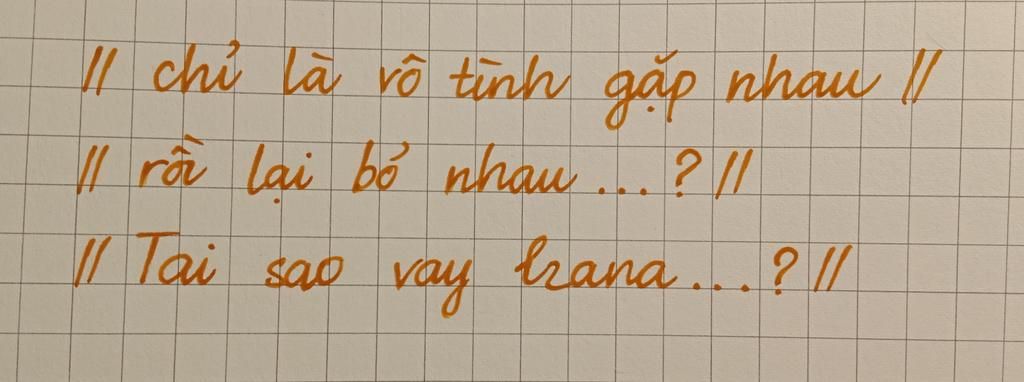 // chỉ là vô tình gặp nhau //
// rồi lại bỏ nhau...? //
// Tai sao vay trana...? //